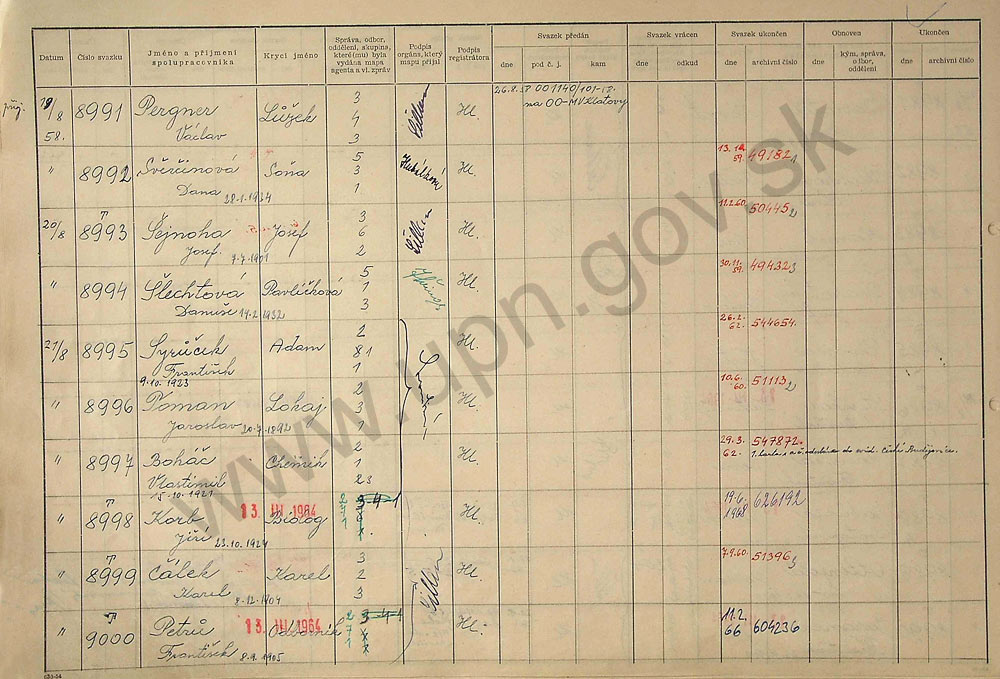 Datum
Číslo svazku
Jméno a příjmení spolupracovníka
Krycí jméno
Správa, odbor, oddělení, skupina, které(mu) byla vydána mapa agenta a vl. zpráv
Podpis orgána, který mapu přijal
Podpis registrátora
Svazek předán
dne
pod č. j.
kam
Svazek vrácen
dne
odkud
Svazek ukončen
dne
archivní číslo
Obnoven
dne
kým, správa, odbor, oddělení
Ukončen
dne
archivní číslo
19/8 58. 8991 Pergner Václav Lůžek 3 4 3 Hl. 26.8.58 001140/101-
na OO-MV Klatovy
" 8992 Svěrčinová Dana 28.1.1934 Soňa 5 3 1 Hl. 59. 49182
20/8 8993 Šejnoha Josef 7.7.1901 Josef 3 6 2 Hl. 11.2.60. 50445
" 8994 Šlechtová Danuše 14.2.1932 Pavlíčková 5 1 3 Hl. 30.11.59. 49432
21/8 8995 Syrůček František 9.10.1923 Adam 2 81 1 Hl. 26.2.62. 544654.
" 8996 Toman Jaroslav 20.7.1892 Lokaj 2 3 1 Hl. 10.6.60. 51113
" 8997 Boháč Vlastimil 15.10.1921 Chemik 2 1 23 Hl. 29.3.62. 547872.
České Budějovice.
" 8998 Korb Jiří 23.10.1924 13. III. 1964 Biolog Hl. 19.6.1968 626192
" 8999 Čálek Karel 8.12.1904 Karel 3 2 3 Hl. 7.9.60. 51396
" 9000 Petrů František 8.9.1905 13. III. 1964 Odborník 2 7 1 Hl. 11.2.66 604236
www.upn.gov.sk